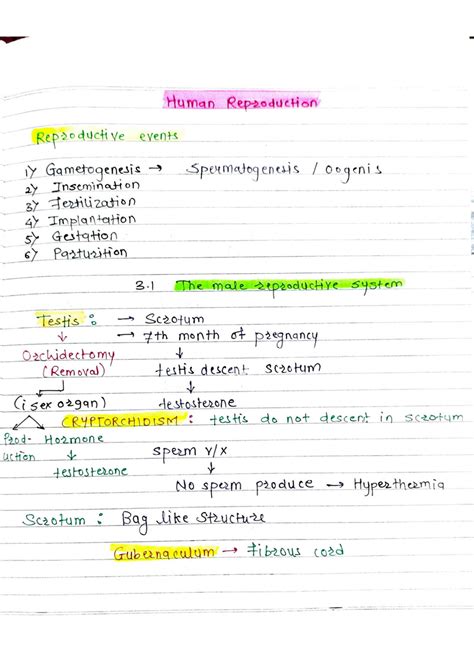 Human Reproduction
Reproductive events
1) Gametogenesis → Spermatogenesis / oogenis
2) Insemination
3) Fertilization
4) Implantation
5) Gestation
6) Parturition
3.1 The male reproductive system
Testis : → Scrotum
↓ → 7th month of pregnancy
Orchidectomy ↓
(Removal) testis descent scrotum
↓
(i sex organ) testosterone
CRYPTORCHIDISM : testis do not descent in scrotum
Prod- Hormone
uction ↓ sperm Y/X
testosterone ↓
No sperm produce → Hyperthermia
Scrotum : Bag like structure
Gubernaculum → Fibrous cord